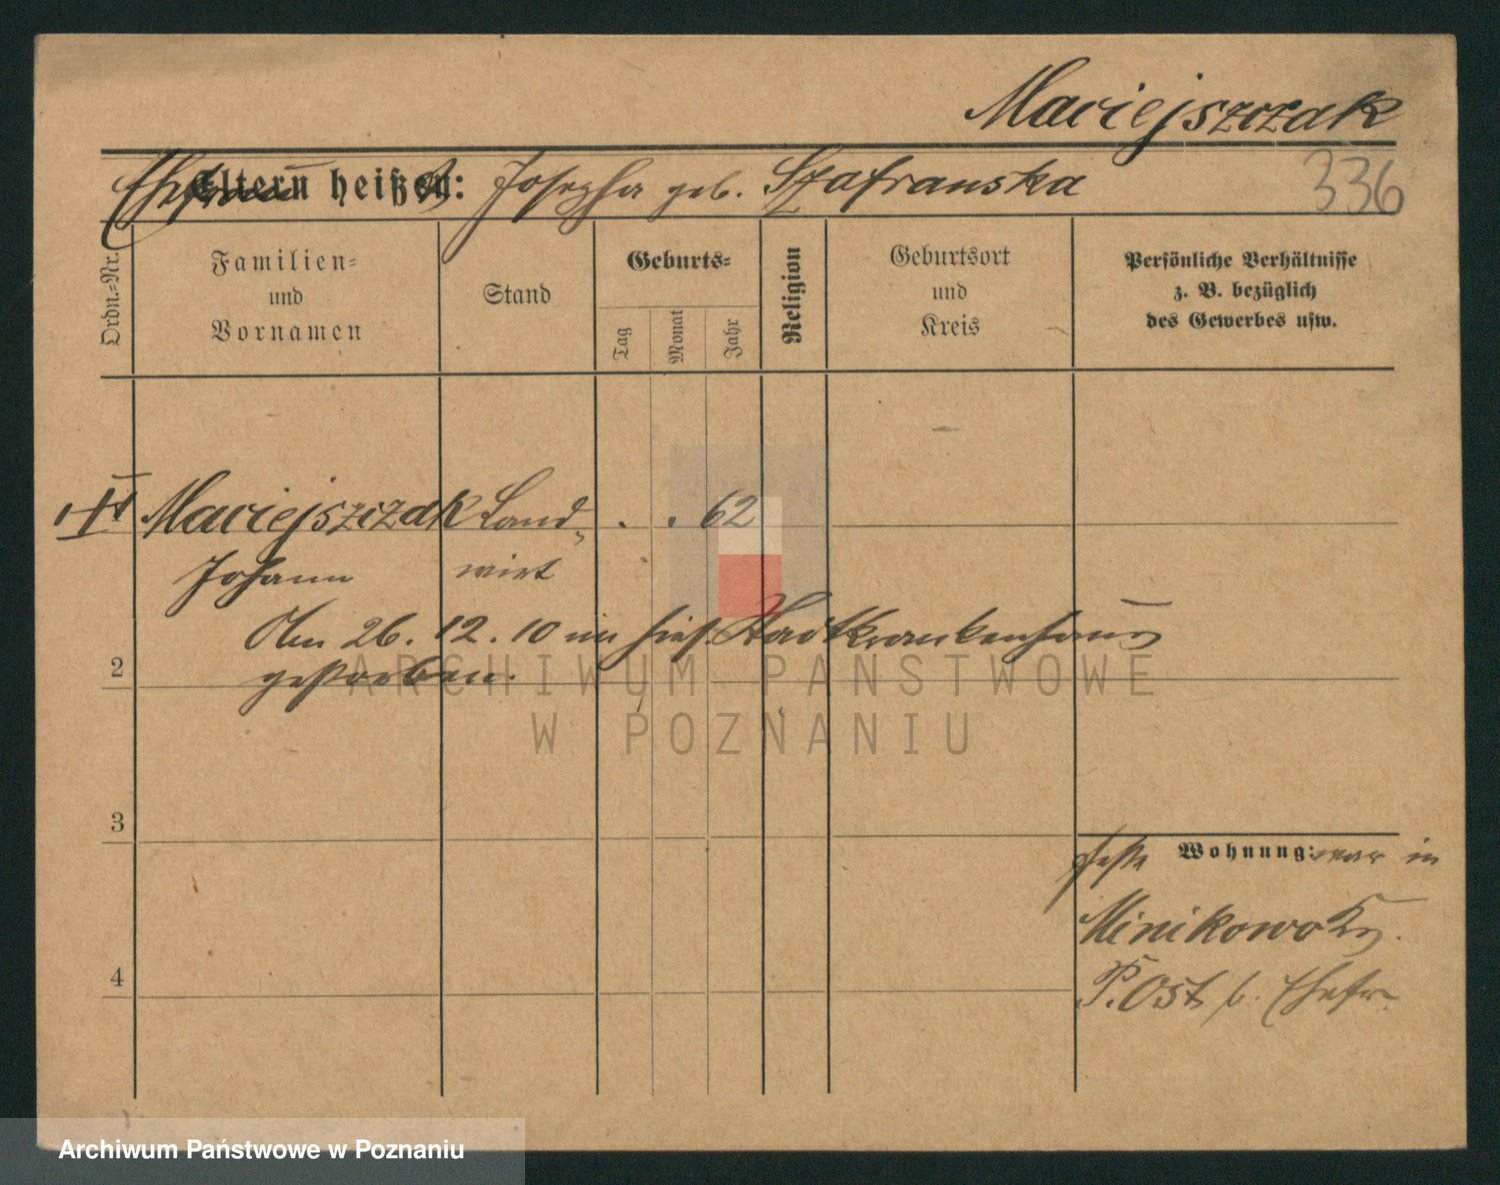 Maciejszczak
336
Ehefrau
Eltern heißen: Josepha geb. Szafranska
Ordn.=Nr.
Familien=
und
Vornamen
Stand
Geburts=
Tag
Monat
Jahr
Religion
Geburtsort
und
Kreis
Persönliche Verhältnisse
z. B. bezüglich
des Gewerbes usw.
Maciejszczak Land- . . 62
Johann wirt
Am 26. 12. 10 im hies. Stadtkrankenhaus
2 gestorben.
ARCHIWUM PAŃSTWOWE
W POZNANIU
3
feste Wohnung: war in
Minikowo Kr.
4
P. Ost b. Ehefr.
Archiwum Państwowe w Poznaniu